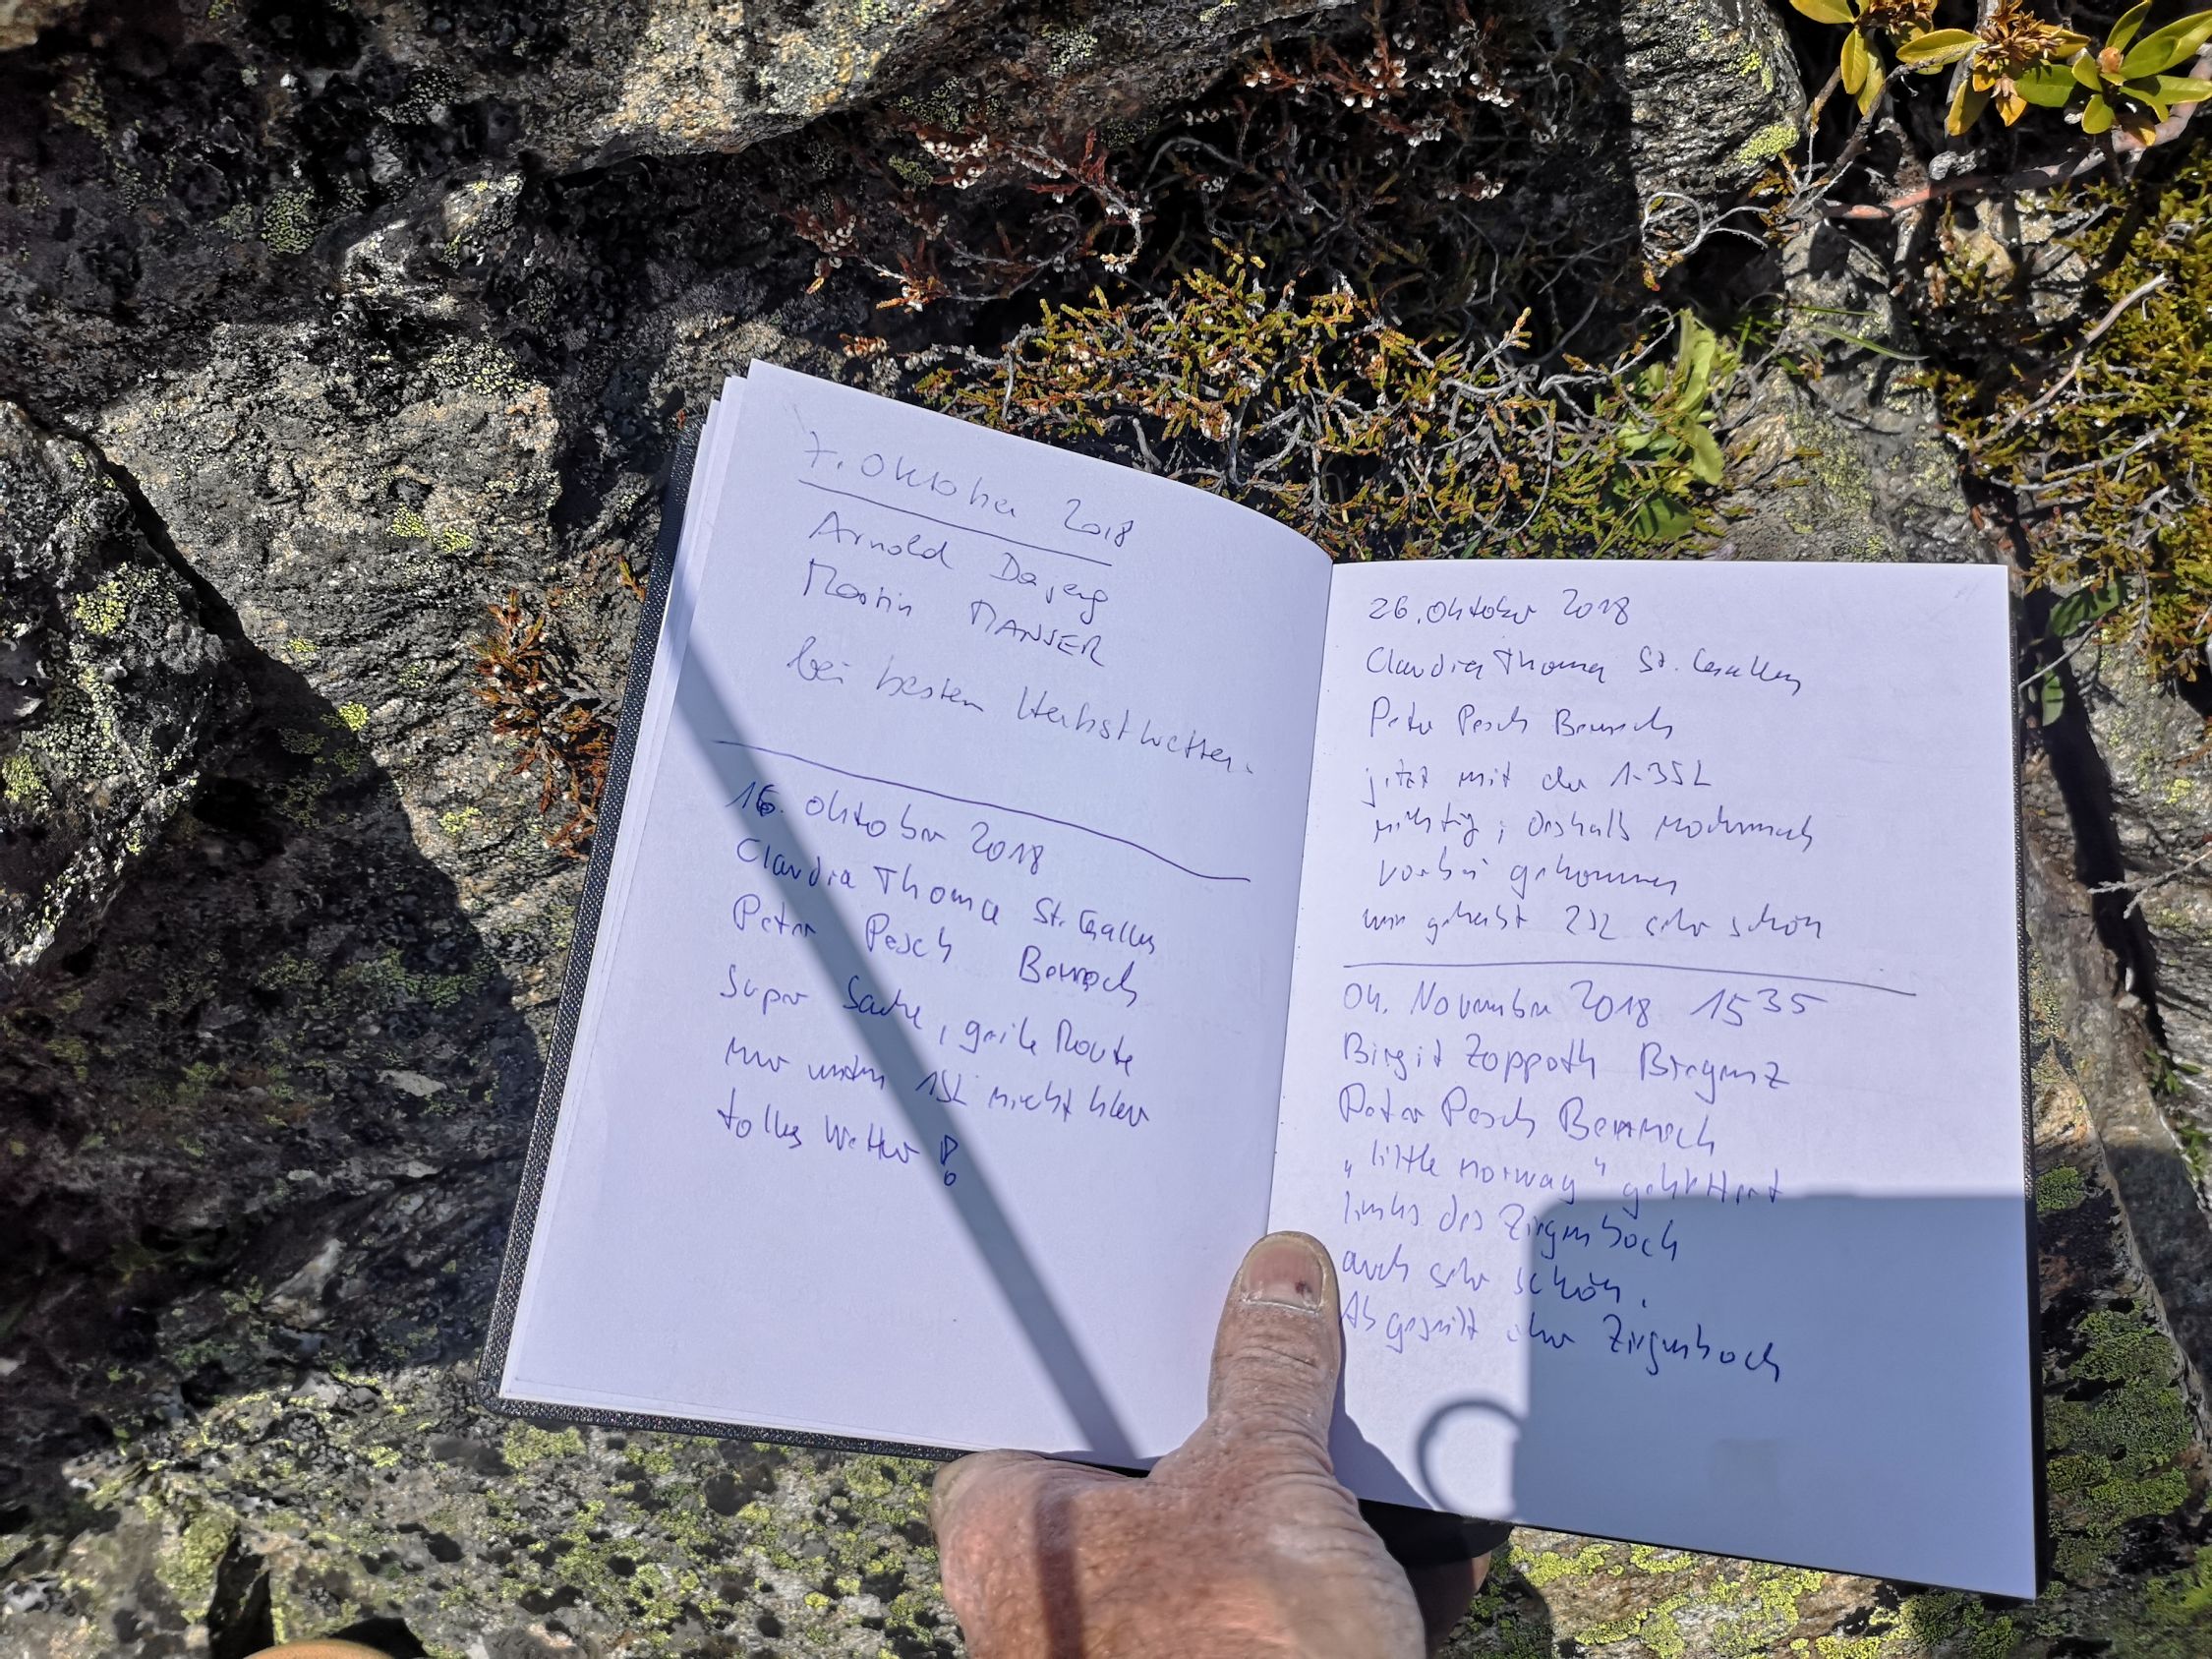 7. Oktober 2018
Arnold
Martin MANSER
bei bestem Herbstwetter.
16. Oktober 2018
Claudia Thoma St. Gallen
Peter Pesch
Super Sache, geile Route
nur unten 1SL nicht klar
tolles Wetter!
26. Oktober 2018
Claudia Thoma St. Gallen
Peter Pesch
jetzt mit der 1-3SL
richtig, deshalb nochmach
vorbei gekommen
2SL sehr schön
04. November 2018 15 35
Birgit Zoppoth Bregenz
Peter Pesch
„little norway" geklettert
links des Zirgenboch
auch sehr schön.
Abgeseilt über Zirgenboch